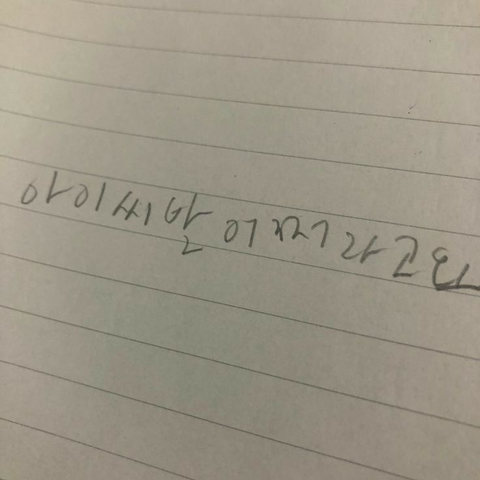 아이씨발 어쩌라고